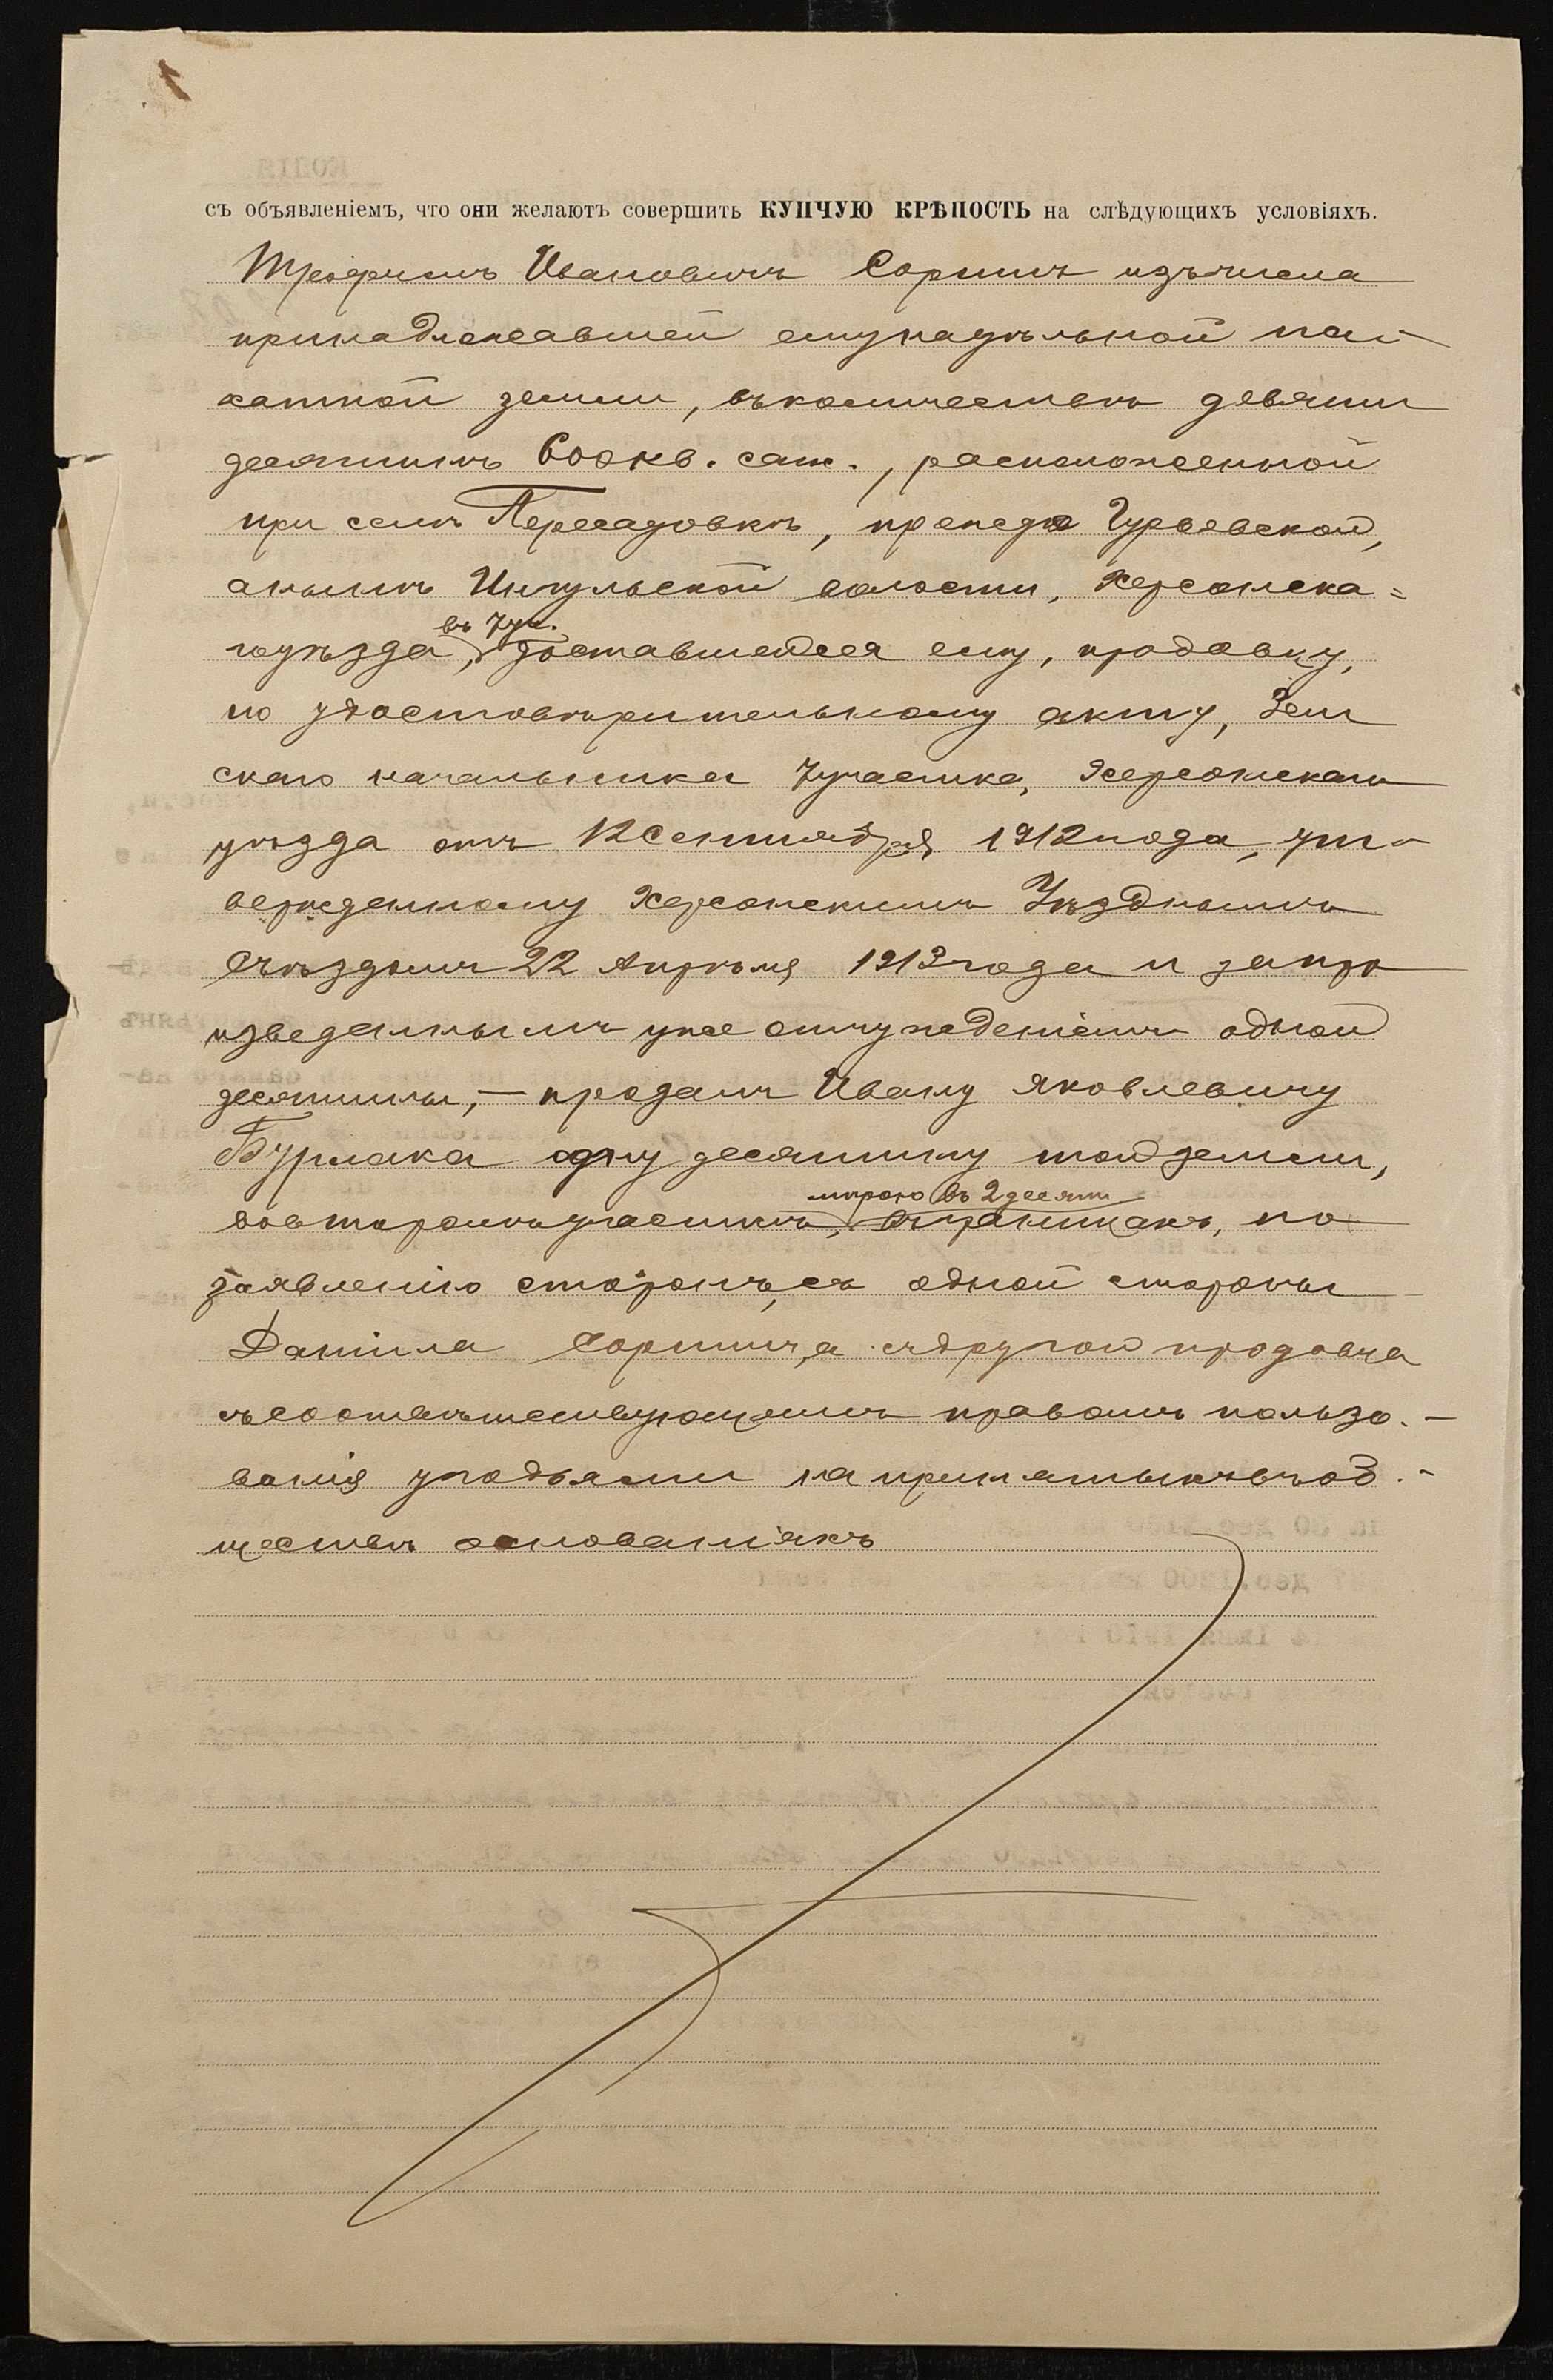 съ объявленіемъ, что они желаютъ совершить КУПЧУЮ КРѢПОСТЬ на слѣдующихъ условіяхъ.
Трофимъ Ивановичъ Соришъ изъ числа
принадлежавшей ему надѣльной па-
хатной земли, въ количествѣ девяти
десятинъ 600 кв. саж., расположенной
при селѣ Пересадовкѣ, прежде Гурьевской,
а нынѣ Ингульской волости, Херсонска=
го уѣзда, доставшейся ему, продавцу,
въ 7 уч.
по удостовѣрительному акту, Зем
скаго начальника 7 участка, Херсонскаго
уѣзда отъ 12 Сентября 1912 года, ут-
вержденному Херсонскимъ Уѣзднымъ
Съѣздомъ 22 Апрѣля 1913 года и за про
изведеннымъ уже отчужденіемъ одной
десятины,— продалъ Ивану Яковлевичу
Бурлака одну десятину той земли,
во второмъ участкѣ, въ границахъ, по
мѣрою въ 2 десят
заявленію сторонъ, съ одной стороны
Даніила Соришъ, а съ другой продавца
съ соотвѣтствующимъ правомъ пользо.-
ванія угодьями на принятыхъ въ об.-
ществѣ основаніяхъ